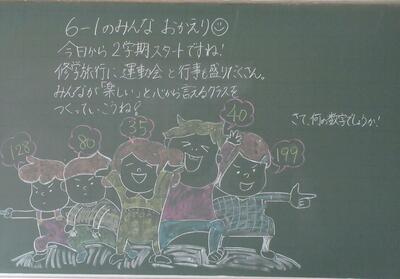 6-1のみんな おかえり☺
今日から2学期スタートですね!
修学旅行に運動会と行事も盛りだくさん。
みんなが「楽しい」と心から言えるクラスを
つくっていこうね!
さて、何の数字でしょうか!
128
80
35
40
199